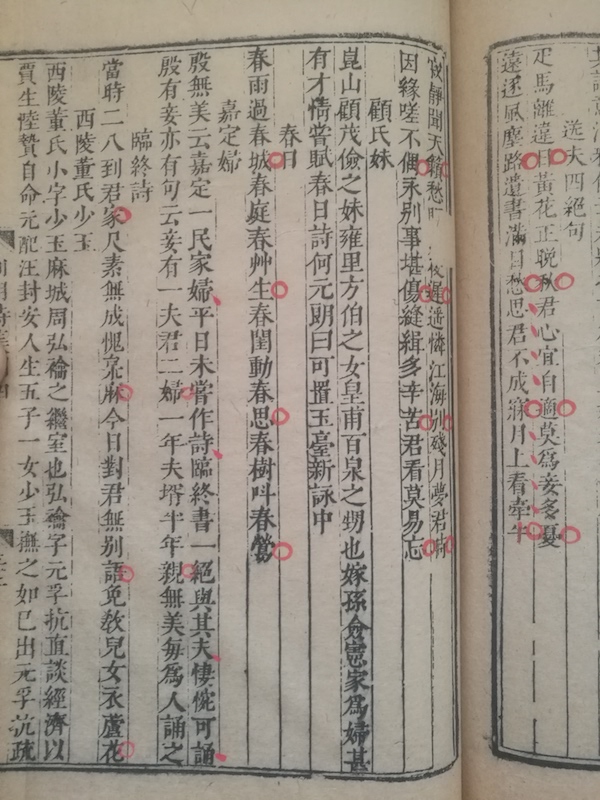 送夫四絶句
疋馬離違日黃花正晚秋君心宜自適莫爲妾多憂
遠逐風塵路遺書滿目愁思君不成寐月上看牽牛
寂靜聞天籟愁
遲遲憐江海別殘月夢君
因緣嗟不偶永别事堪傷縫緝多辛苦君看莫易忘
顧氏妹
崑山顧茂儉之妹雍里方伯之女皇甫百泉之甥也嫁孫僉憲家爲婦甚
有才情嘗賦春日詩何元朗曰可置玉臺新詠中
春日
春雨過春城春庭春艸生春閨動春思春樹呌春鶯
嘉定婦
殷無美云嘉定一民家婦平日未嘗作詩臨終書一絕與其夫悽惋可誦
殷有妾亦有句云妾有一夫君二婦一年夫壻半年親無美每爲人誦之
臨終詩
當時二八到君家尺素無成愧枲麻今日對君無别語免敎兒女衣蘆花
西陵董氏少玉
西陵董氏小字少玉麻城周弘禴之繼室也弘禴字元孚抗直談經濟以
賈生陸贄自命元配汪封安人生五子一女少玉撫之如已出元孚抗疏